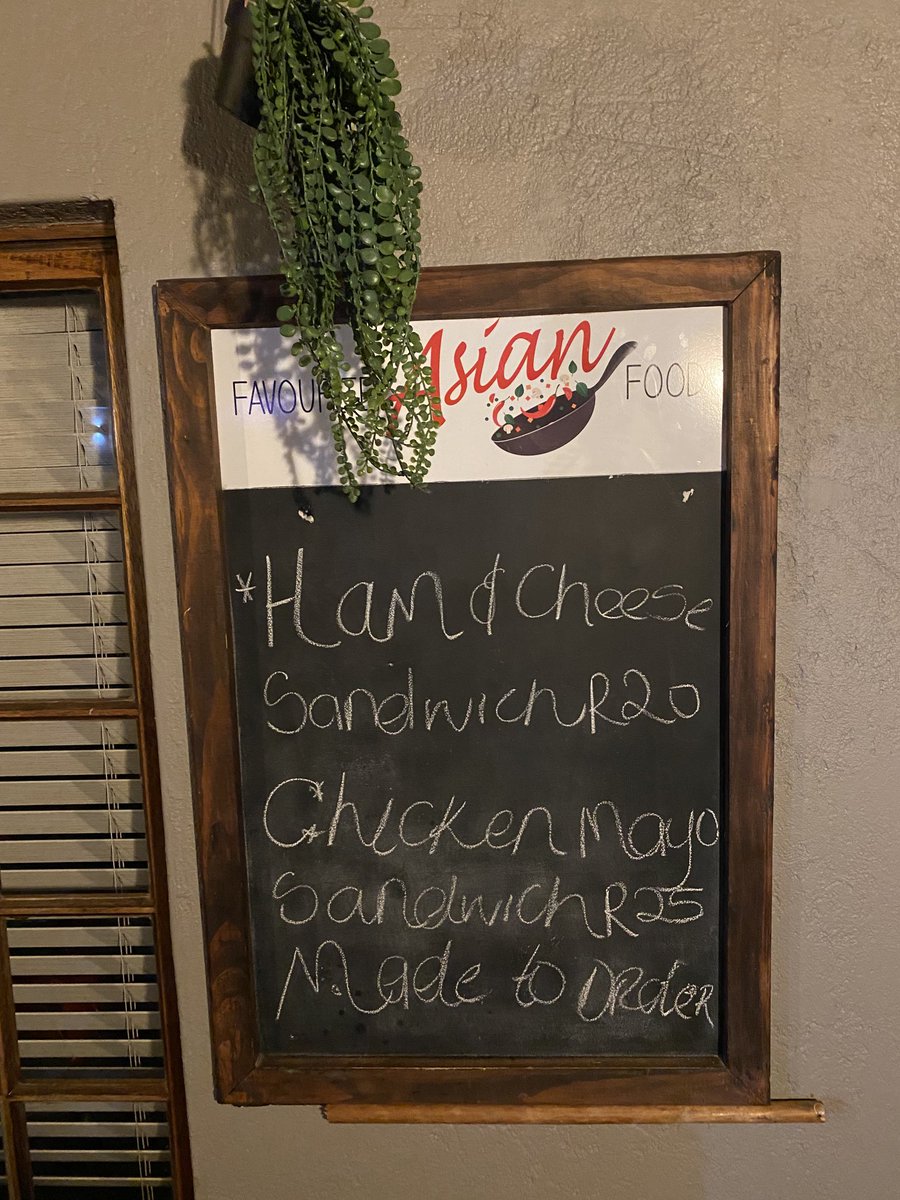 FAVOURITE Asian FOOD
*Ham & Cheese
Sandwich R20
*Chicken mayo
Sandwich R25
Made to ORder